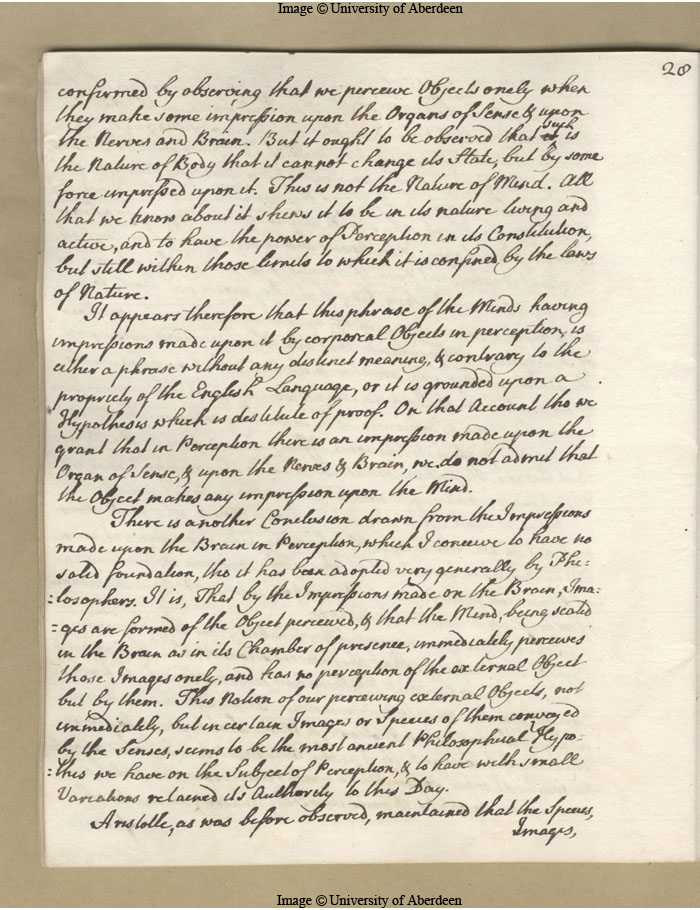 Image © University of Aberdeen
28
confirmed by observing that we perceive Objects onely when
they make some impression upon the Organs of Sense & upon
the Nerves and Brain. But it ought to be observed that such is
the Nature of Body that it cannot change its State, but by some
force impressed upon it. This is not the Nature of Mind. All
that we know about it shews it to be in its nature living and
active, and to have the power of Perception in its Constitution,
but still within those limits to which it is confined by the laws
of Nature.
It appears therefore that this phrase of the Minds having
impressions made upon it by corporeal Objects in perception, is
either a phrase without any distinct meaning, & contrary to the
propriety of the English Language, or it is grounded upon a
Hypothesis which is destitute of proof. On that Account tho we
grant that in Perception there is an impression made upon the
Organ of Sense, & upon the Nerves & Brain, we do not admit that
the Object makes any impression upon the Mind.
There is another Conclusion drawn from the Impressions
made upon the Brain in Perception, which I conceive to have no
solid foundation, tho it has been adopted very generally by Phi:
:losophers. It is, That by the Impressions made on the Brain, Ima:
:ges are formed of the Object perceived, & that the Mind, being seated
in the Brain as in its Chamber of presence, immediately perceives
those Images onely, and has no perception of the external Object
but by them. This Notion of our perceiving external Objects, not
immediately, but in certain Images or Species of them conveyed
by the Senses, seems to be the most ancient Philosophical Hypo:
:thsis we have on the Subject of Perception, & to have with small
Variations retained its Authority to this Day.
Aristotle, as was before observed, maintained that the Species,
Images,
Image © University of Aberdeen